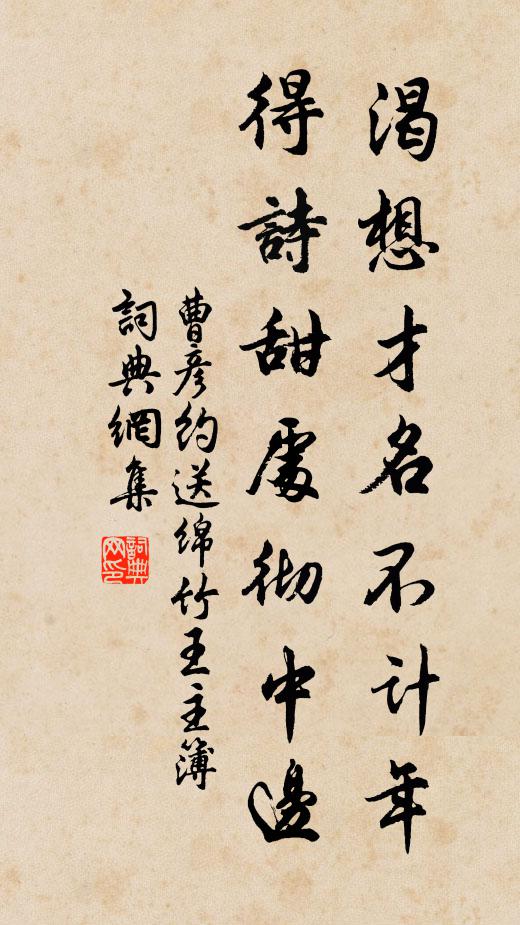 渴想才名不计年
得詩甜處彻中邊
曹彦约送绵竹王主簿
詞典網集
詞典网印